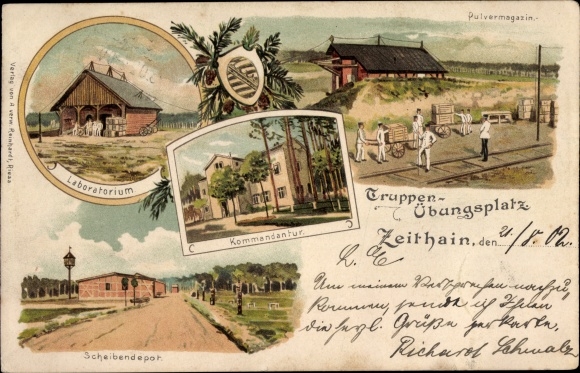 Pulvermagazin.-
Verlag von A. verw. Reinhardt, Riesa
Laboratorium.
Kommandantur.
Truppen-
Übungsplatz
Zeithain, den 21/5. 02.
L. E
Um meinem Versprechen nachzu,
kommen, sende ich Ihnen
die herzl. Grüße per Karte,
Richard Schmalz
Scheibendepot.